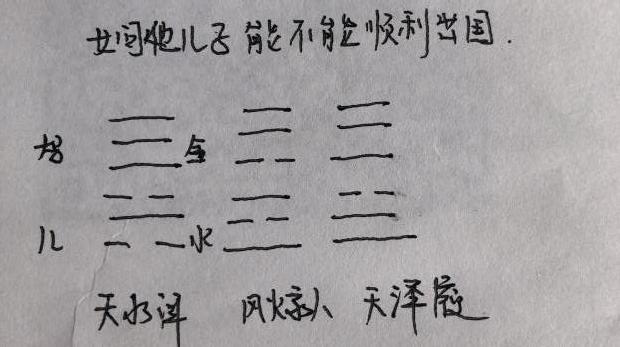 女问她儿子能不能顺利出国.
母 金
儿 水
天水讼 风火家人 天泽履